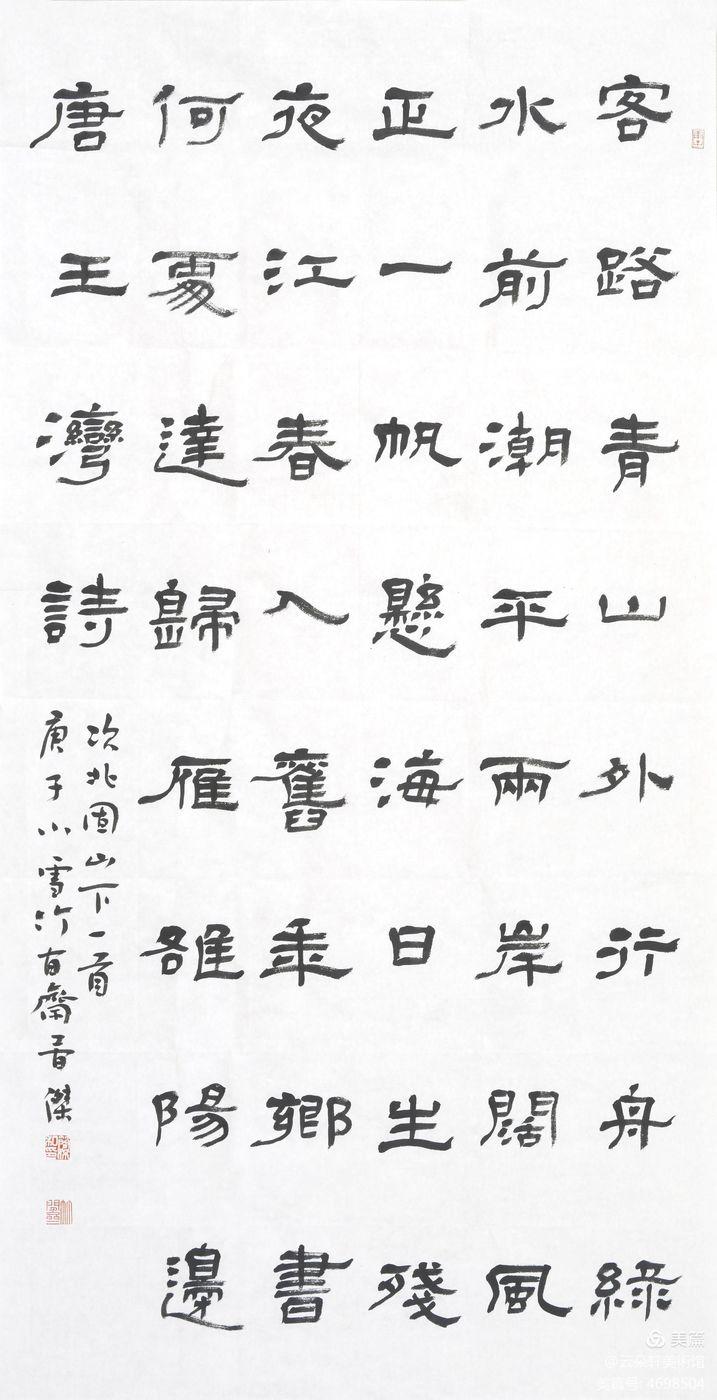 客路青山外行舟綠
水前潮平兩岸闊風
正一帆懸海日生殘
夜江春入舊年鄉書
何處達歸雁雒陽邊
唐王灣詩
次北固山下一首
庚子小雪竹齋傑
美篇
@云朵轩美術馆
美篇号: 4698504